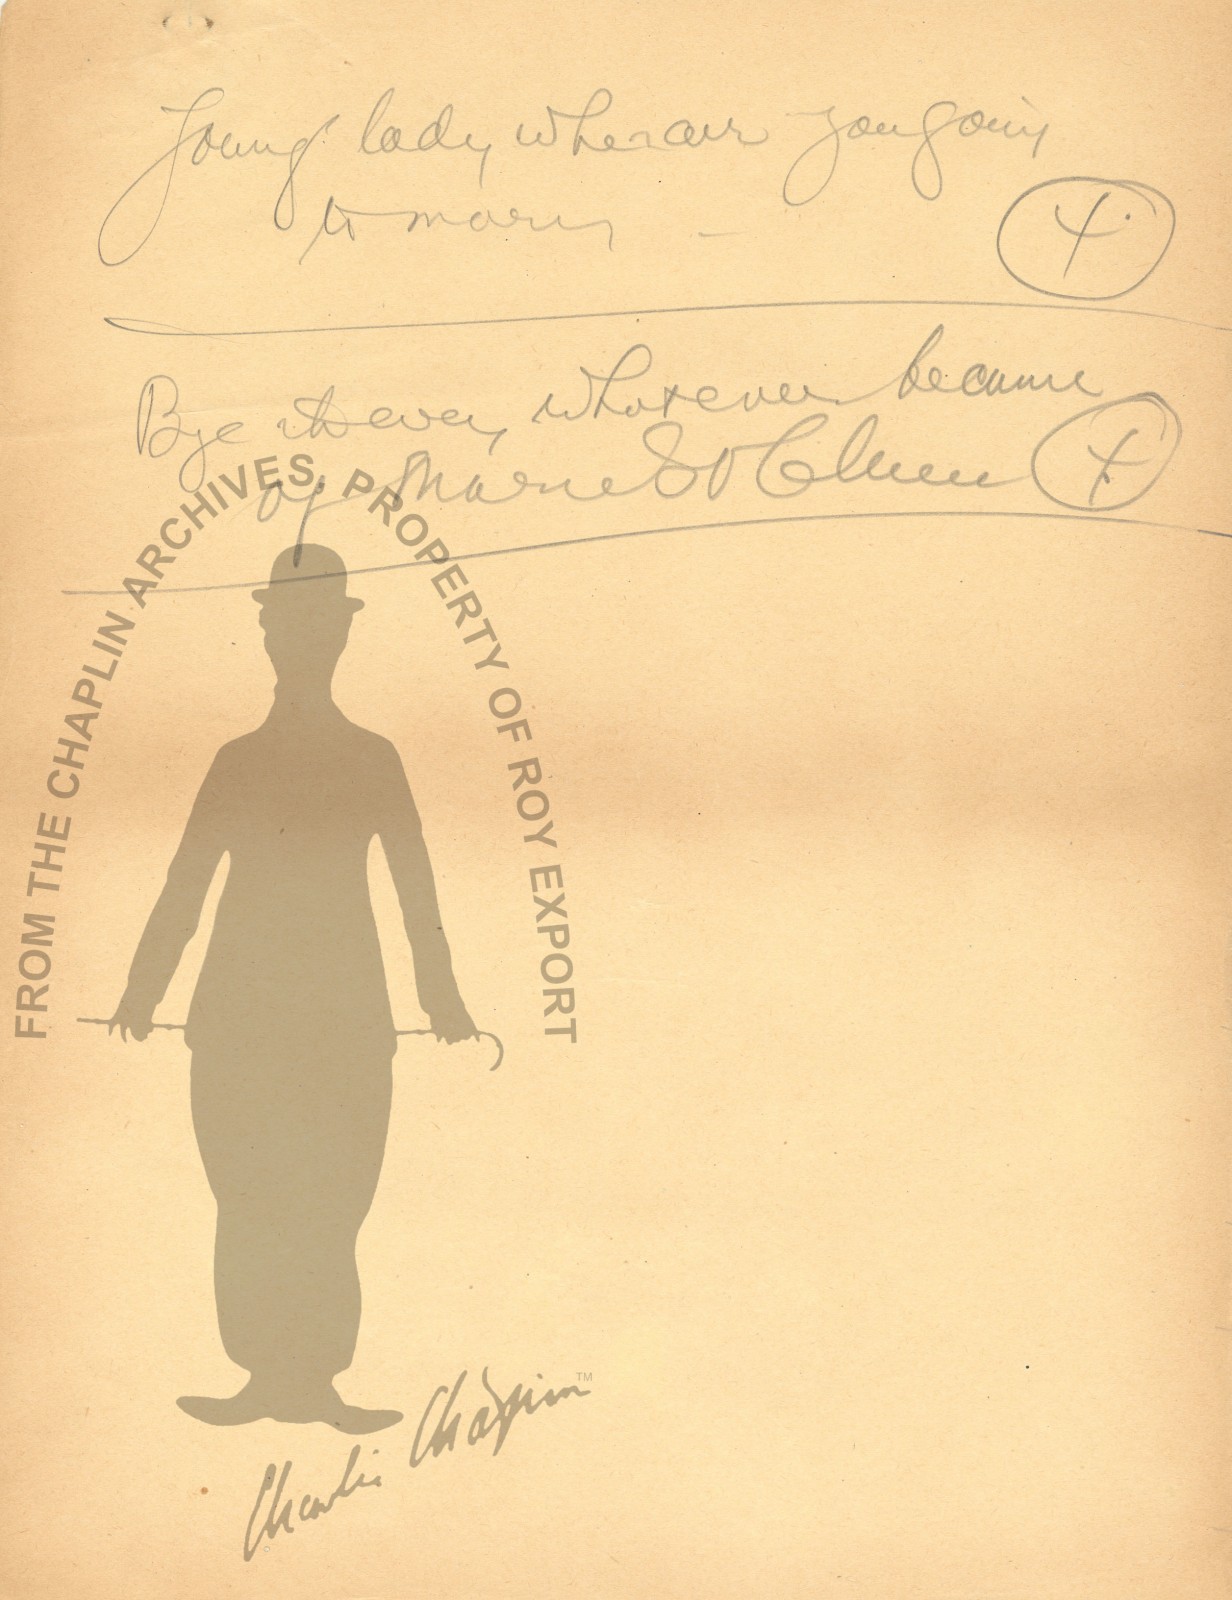 Young lady when are you going
to marry –
X
Bye the way, whatever became
of
X
FROM THE CHAPLIN ARCHIVES, PROPERTY OF ROY EXPORT
Charlie Chaplin TM